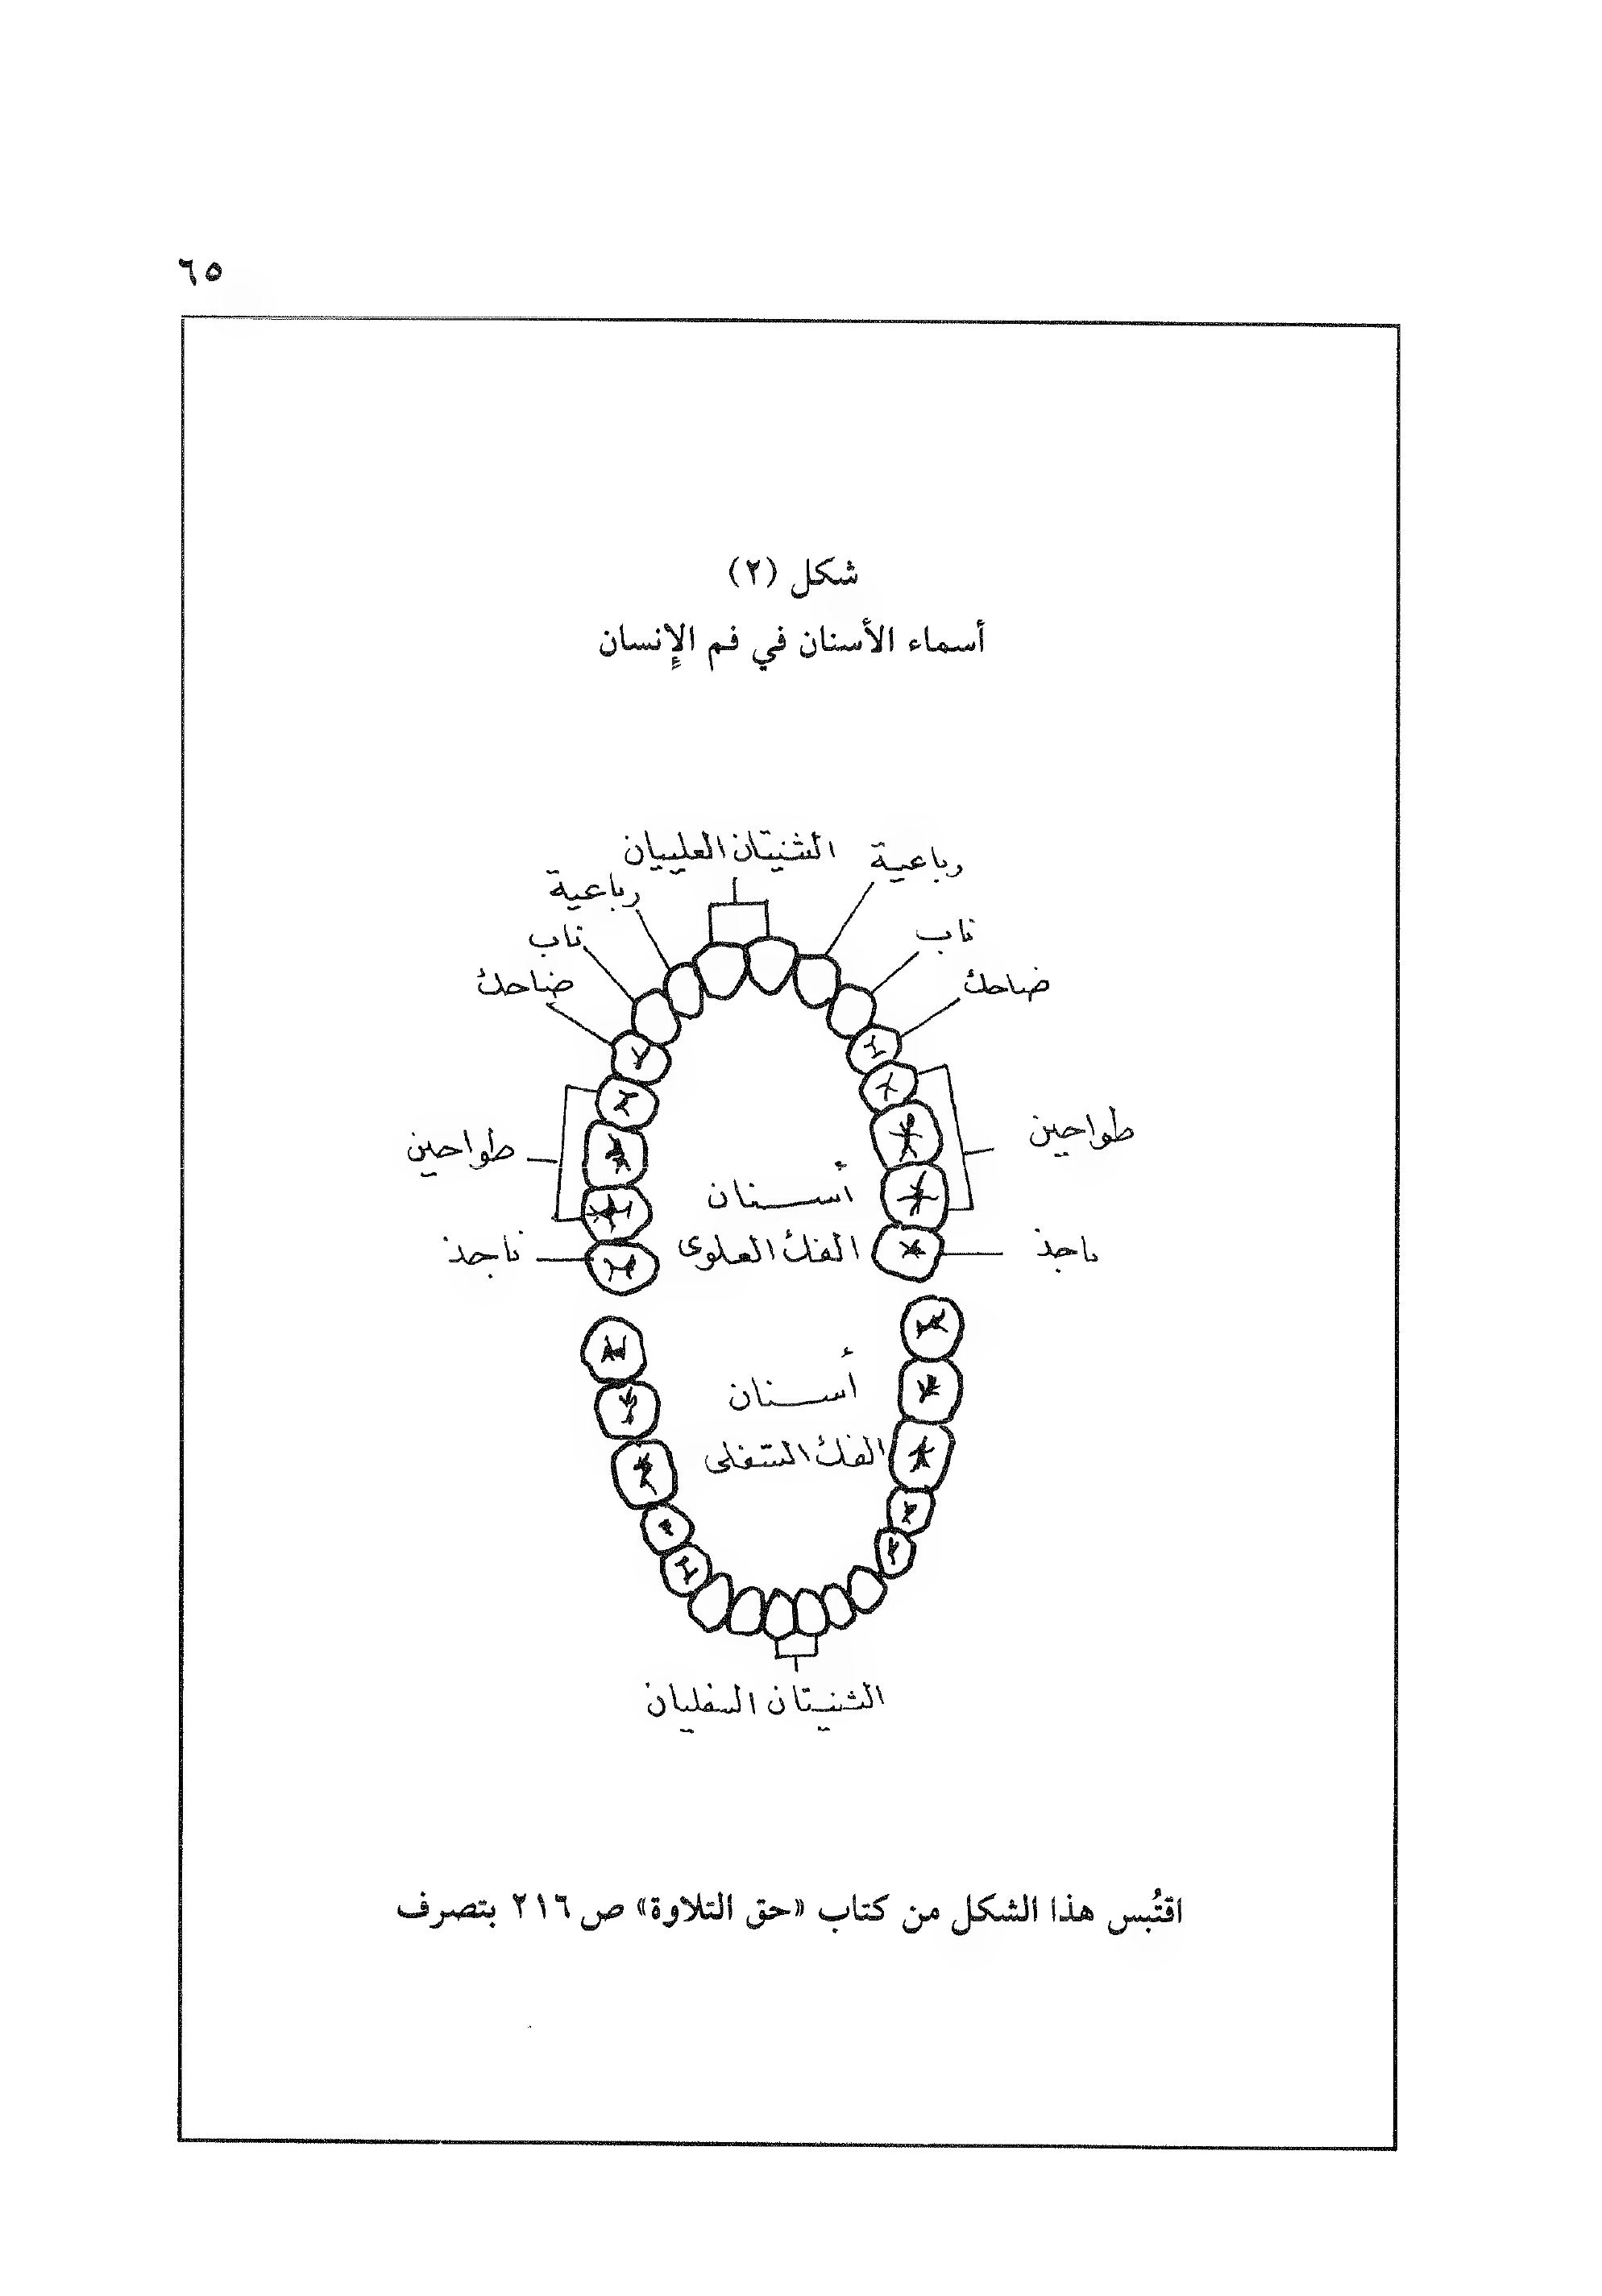 ٦٥
شكل (٢)
أسماء الأسنان في فم الإنسان
الثنيتان العلييان
رباعية
رباعية
ناب
ناب
ضاحك
ضاحك
طواحين
طواحين
أسنان
الفك العلوى
ناجذ
ناجذ
أسنان
الفك السفلى
الثنيتان السفليان
اقتُبس هذا الشكل من كتاب «حق التلاوة» ص ٢١٦ بتصرف